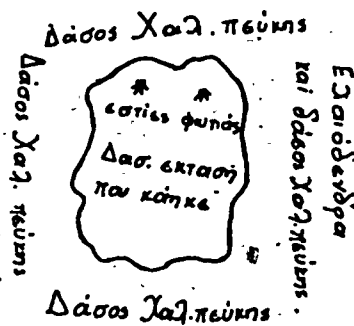 Δάσος Χαλ. πεύκης
Δάσος Χαλ. πεύκης
εστίες φωτιάς
Δασ. εκτασή
που κάηκε
Ελαιόδενδρα
καί δάσος Χαλ. πεύκης.
Δάσος Χαλ. πεύκης